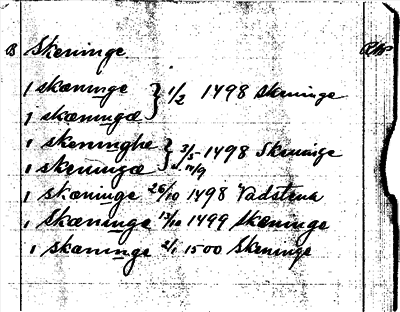 B Skeninge
i skæninge } 1/2 1498 Skeninge
i skæningæ
i skeninghe } 3/5 1498 Skeninge
i skeningæ 14/9
i skæninge 26/10 1498 Vadstena
i Skæninge 13/10 1499 Skæninge
i skæninge 2/1 1500 Skeninge